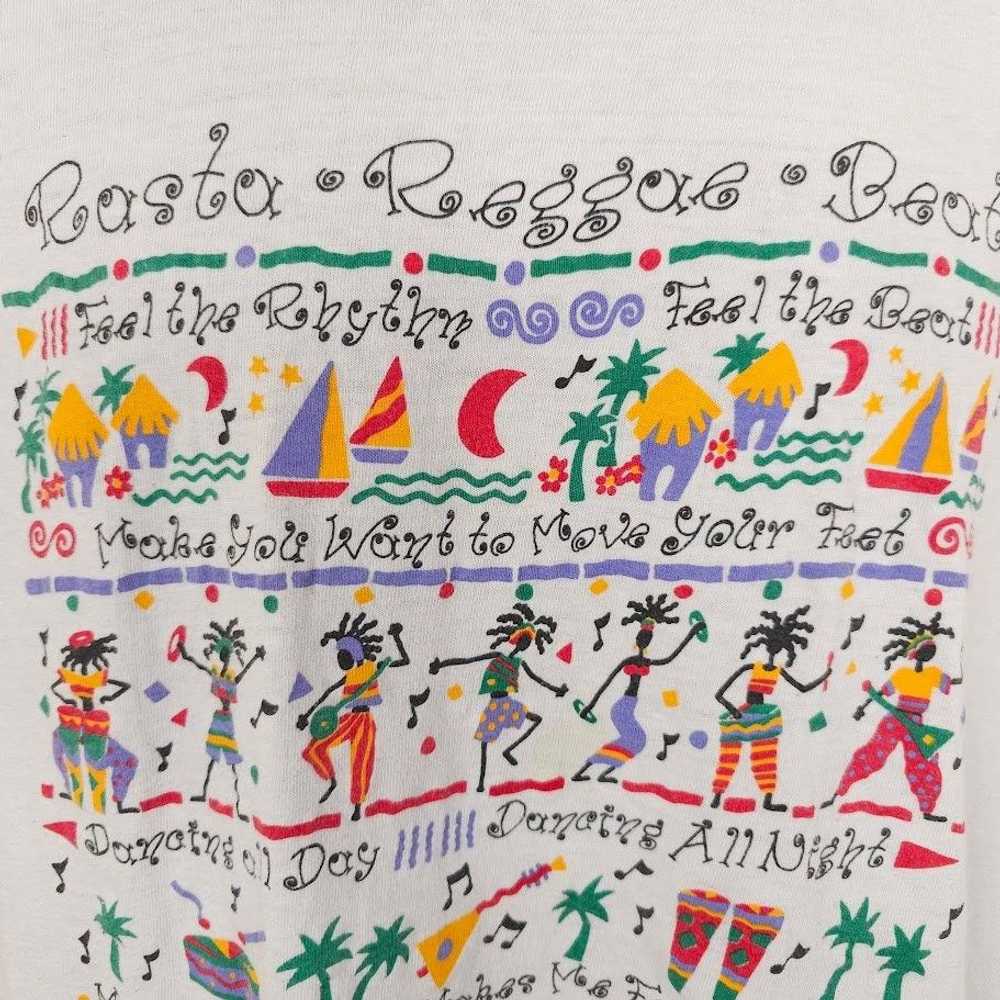 Rasta • Reggae • Beat
Feel the Rhythm Feel the Beat
Make You Want to Move Your Feet
Dancing all Day Dancing All Night
Makes Me